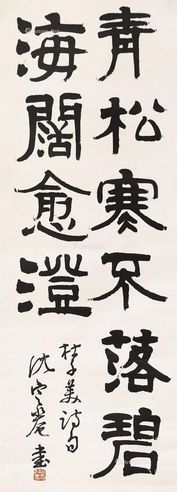 青松寒不落碧
海闊愈澄
杜子美詩句
沈定庵書